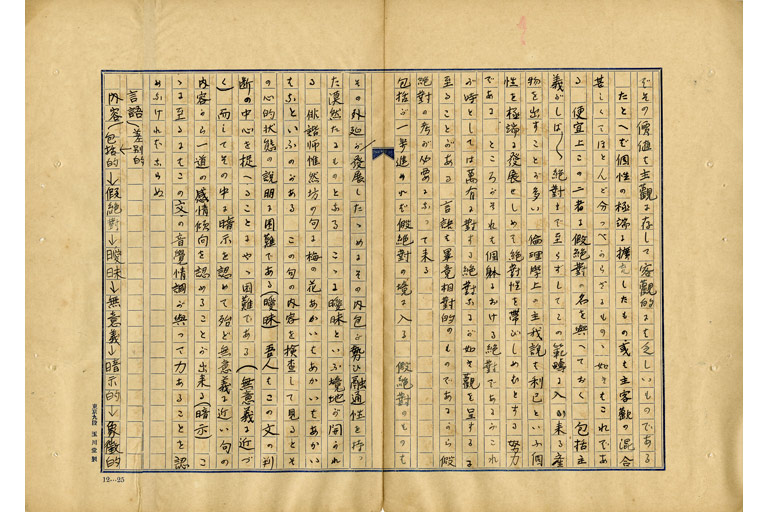 がその価値を主観に存して客観的には乏しいものである
たとへば個性の極端に擴充したもの或は主客觀の混合
甚しくてほとんど分つべからざるものゝ如きもこれであ
る 便宜上この二者に假絶對の名を與へておく 包括主
義がしば〱絶對にまで至らずしてこの範疇に入り來る産
物を出すことが多い 倫理學上の主我説も利己といふ個
性を極端に發展せしめて絶對性を帶びしめむとする努力
である ところがそれも個躰に於ける絶對であるがこれ
が時としては萬有に對する絶對なるが如き觀を呈するに
至ることがある 言語は畢竟相對的のものであるから假
絶對の考が必要となつて来る
包括が一歩進めれば假絶對の境に入る 假絶對のものも
その外延が發展したゝめにその内包が勢ひ融通性を持つ
た漠然たるものとなる こゝに曖昧といふ境地が開かれ
る 俳諧師惟然坊の句に梅の花あかいはあかいはあかい
はなといふのがある この句の内容を檢査して見るとそ
の心的状態の説明に困難である(曖昧) 吾人はこの文の判
断の中心を捉へることはやゝ困難である(無意義に近づ
く) 而してその中に暗示を認めて殆ど無意義に近い句の
内容から一道の感情傾向を認めることが出来る(暗示) こ
ゝに至るまでこの文の音覺情調が與つて力あることを認
めなければならぬ
言語 差別的
内容 包括的→假絶對→曖昧→無意義→暗示的→象徴的
東京九段 玉川堂製
12—25